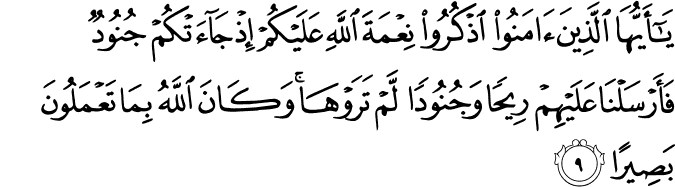 يَٰٓأَيُّهَا ٱلَّذِينَ ءَامَنُوا۟ ٱذْكُرُوا۟ نِعْمَةَ ٱللَّهِ عَلَيْكُمْ إِذْ جَآءَتْكُمْ جُنُودٌ
فَأَرْسَلْنَا عَلَيْهِمْ رِيحًا وَجُنُودًا لَّمْ تَرَوْهَا ۚ وَكَانَ ٱللَّهُ بِمَا تَعْمَلُونَ
بَصِيرًا ٩